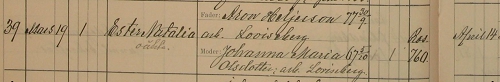 Fader: Aron Heljeson 77 30/9
39 Mars 19 1 Ester Natalia arb. Lovisberg
oäkta. Res. April 14
Moder: Johanna Maria 67 760.
Olsdotter; arb. Lovisberg